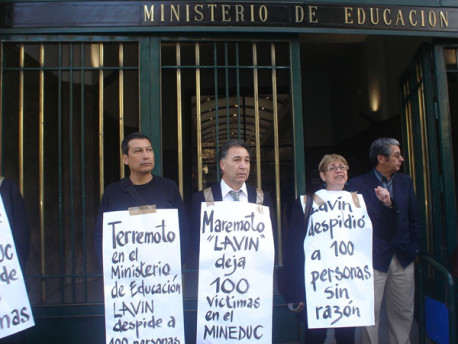 MINISTERIO DE EDUCACION
Terremoto
en el
Ministerio
de Educación
LAVIN
despide a
100 personas
Maremoto
"LAVIN"
deja
100
víctimas
en el
MINEDUC
Lavin
despidió
a 100
personas
sin
razón